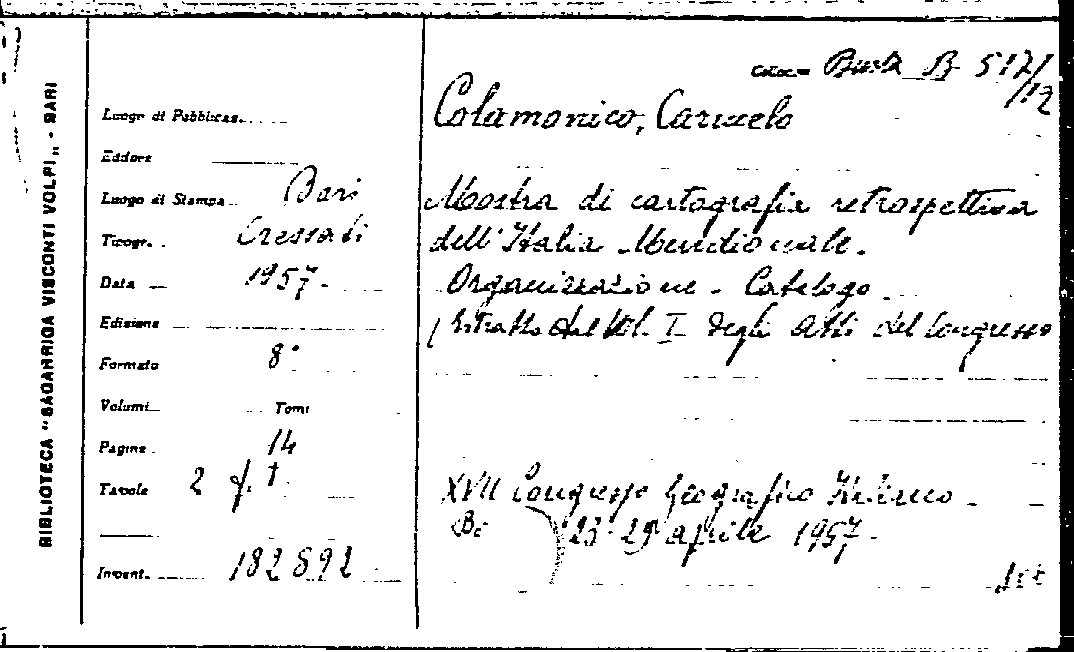 BIBLIOTECA "SAGARRIGA VISCONTI VOLPI" - BARI
Luogo di Pubblicaz.
Editore
Luogo di Stampa Bari
Tipogr. Cressati
Data 1957.
Edizione
Formato 8°
Volumi Tomi
Pagine 14
Tavole 2 f. t.
Invent. 182892
Colocaz. Busta B 517/
/12
Colamonico, Carmelo
Mostra di cartografia retrospettiva
dell'Italia Meridionale.
Organizzazione - Catalogo
(Estratto dal Vol. I degli Atti del Congresso
XVII Congresso Geografico Italiano -
23-29 aprile 1957.